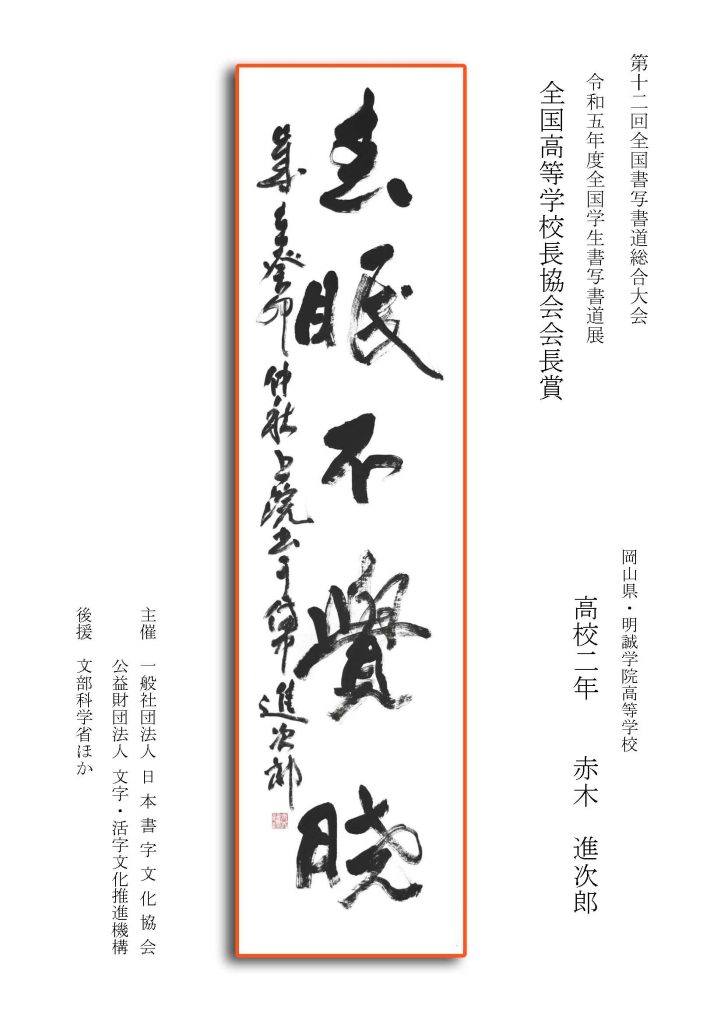 第十二回全国書写書道総合大会
令和五年度全国学生書写書道展
全国高等学校長協会会長賞
岡山県・明誠学院高等学校
高校二年 赤木 進次郎
春眠不覺曉
癸卯仲秋上院書于備中 進次郎
主催 一般社団法人 日本書字文化協会
公益財団法人 文字・活字文化推進機構
後援 文部科学省ほか